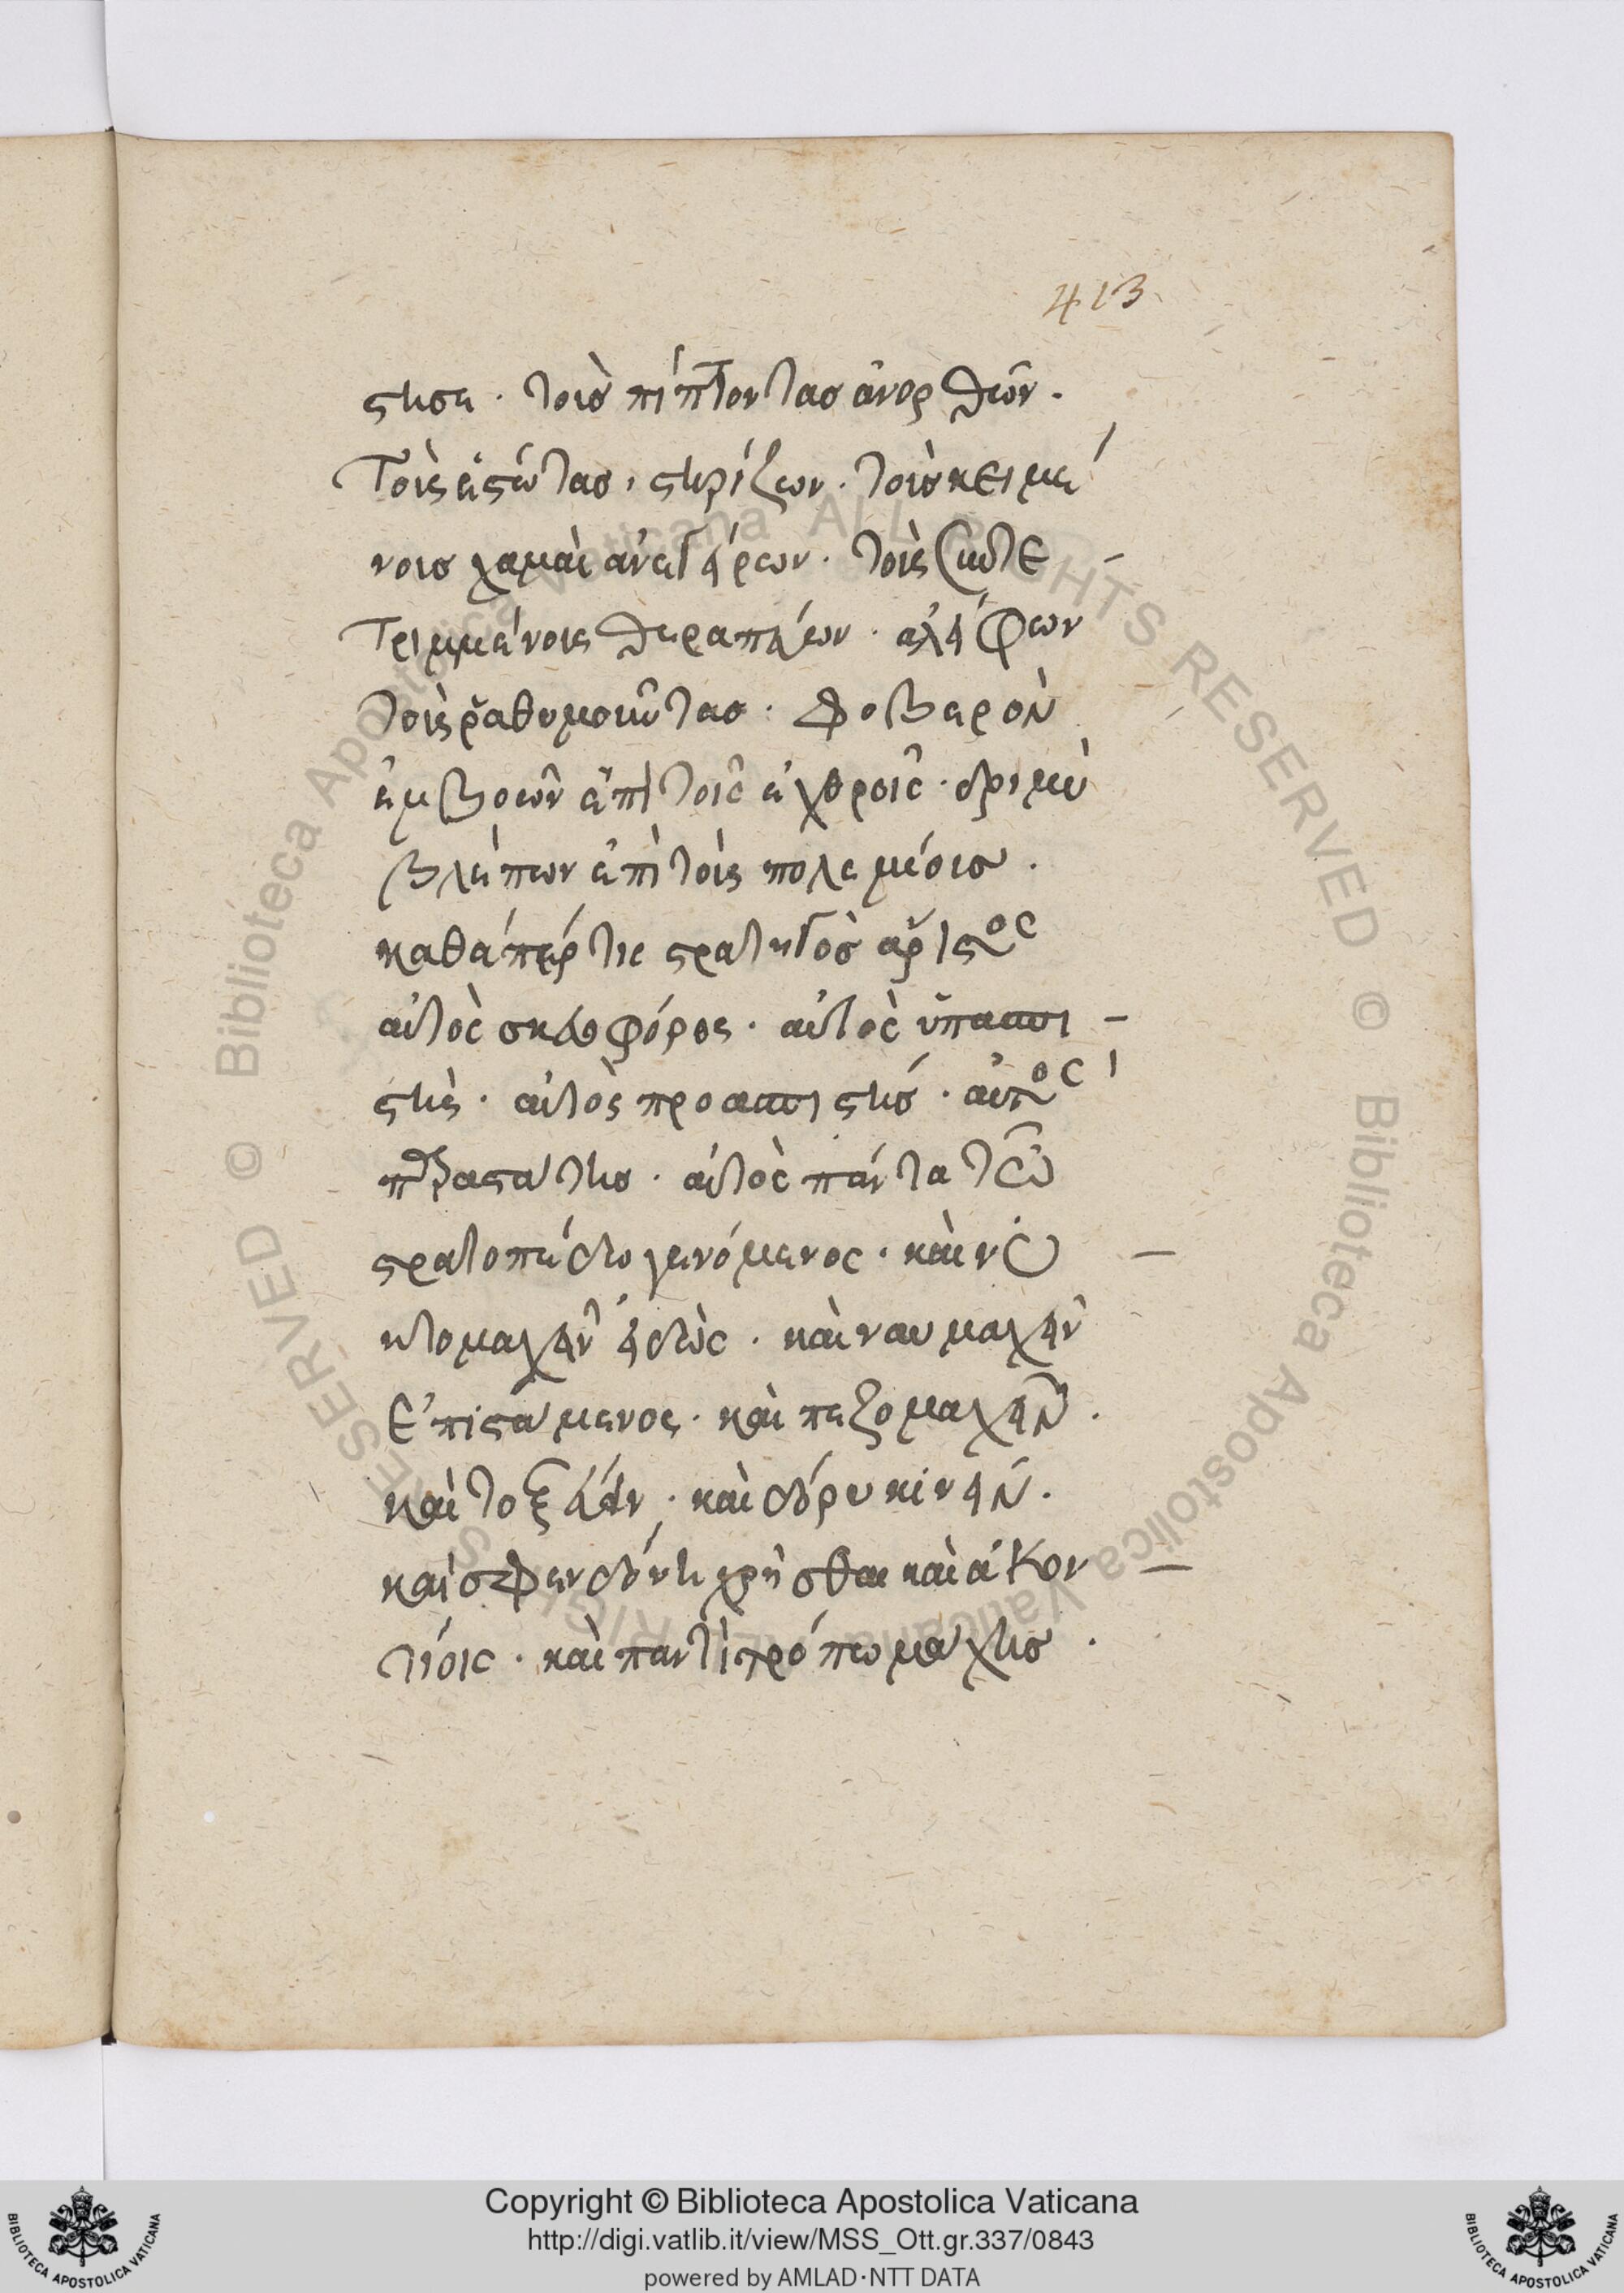 413
στησε · τοὺς πίπτοντας ἀνορθῶν ·
Τοὺς ἑστῶτας, στηρίζων · τοὺς κειμέ
νους χαμαὶ ἀνεγείρων · τοὺς συντε
Τριμμένους θεραπεύων · ἀλείφων
τοὺς ῥαθυμοῦντας · φοβερὸν
ἐμβοῶν ἐπὶ τοῖς ἐχθροῖς · δριμὺ
βλέπων ἐπὶ τοὺς πολεμίους ·
καθάπερ τις στρατηγὸς ἄριστος
αὐτὸς σκευοφόρος · αὐτὸς ὑπασπι -
στὴς · αὐτὸς προασπιστής · αὐτὸς
παραστάτης · αὐτὸς πάντα τῷ
στρατοπέδῳ γενόμενος · καὶ νυ -
κτομαχεῖν εἰδὼς · καὶ ναυμαχεῖν
Ἐπιστάμενος · καὶ πεζομαχεῖν ·
καὶ τοξεύειν · καὶ δόρυ κινεῖν ·
καὶ σφενδόνῃ χρῆσθαι καὶ ἀκον -
τίοις · καὶ παντὶ τρόπῳ μάχης ·
Copyright © Biblioteca Apostolica Vaticana
http://digi.vatlib.it/view/MSS_Ott.gr.337/0843
powered by AMLAD·NTT DATA